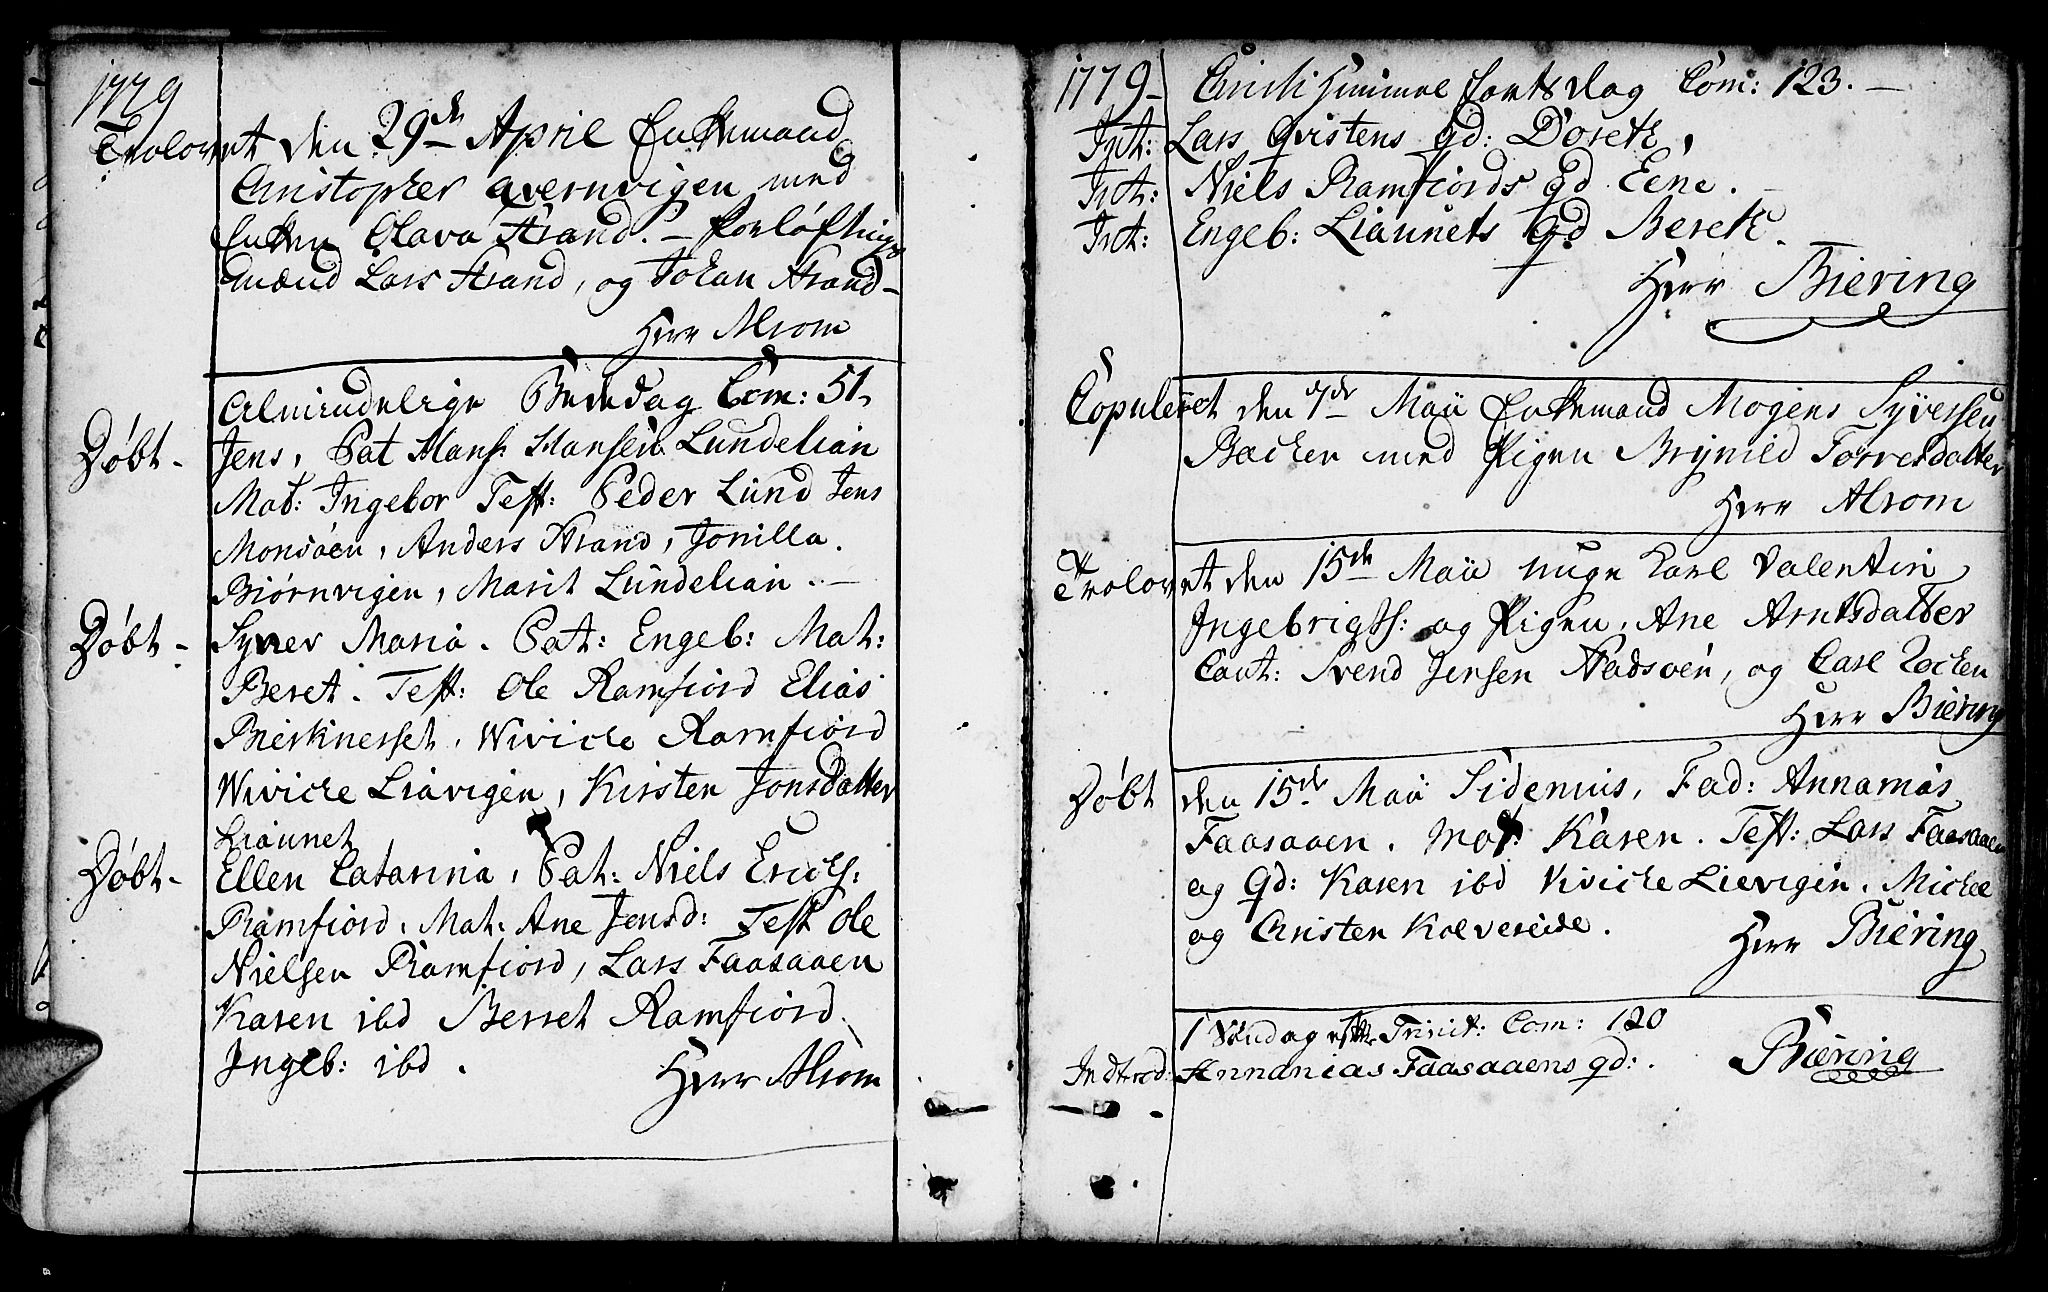 1779
Trolovet den 29de April Enkemand
Christopher Qvernvigen med
Enken Olava Strand. – forløftnings
mænd Lars Strand, og Johan Strand –
Herr Alsom
Almindelige Bededag Com: 51.
Døbt - Jens, Pat Hans Hansen Lundelian
Mat: Ingebor Test: Peder Lund Jens
Monsøen, Anders Strand, Jonilla.
Biørnvigen, Marit Lundelian. –
Døbt - Syver Maria. Pat: Engeb: Mat:
Beret. Test: Ole Ramfiord Elias
Bierknesset, Wiviche Ramfiord
Wiviche Liavigen, Kirsten Jonsdatter
Liaunet
Døbt - Ellen Catarina, Pat: Niels Erichs:
Ramfiord. Mat: Ane Jensd: Test Ole
Nielsen Ramfiord, Lars Faasaaen
Karen ibd Berret Ramfiord.
Ingeb: ibd.
Herr Alsom
1779 – Christi Himmelfartsdag Com: 123. –
Int: Lars Qvistens qd: Dorete,
Int: Niels Ramfiords qd Lene. –
Int: Engeb: Liaunets qd Berete.
Herr Biering
Copuleret den 7de Maii Enkemand Mogens Syversen
Backen med Pigen Brynild Torresdatter
Herr Alsom
Trolovet den 15de Maii unge Karl Valentin
Ingebrigts: og Pigen, Ane Arntsdatter
Caut: Svend Jensen Stadsøen, og Carl Zechen
Herr Biering
Døbt den 15de Maii Sidenius, Fad: Annanias
Faasaaen. Mot: Karen. Test: Lars Faasaaen
og Qd: Karen ibd Viviche Lievigen. Michel
og Christen Kolvereide.
Herr Biering
1 Søndag efter Trinit: Com: 120
Indtred: Annanias Faasaaens qd:. Biering